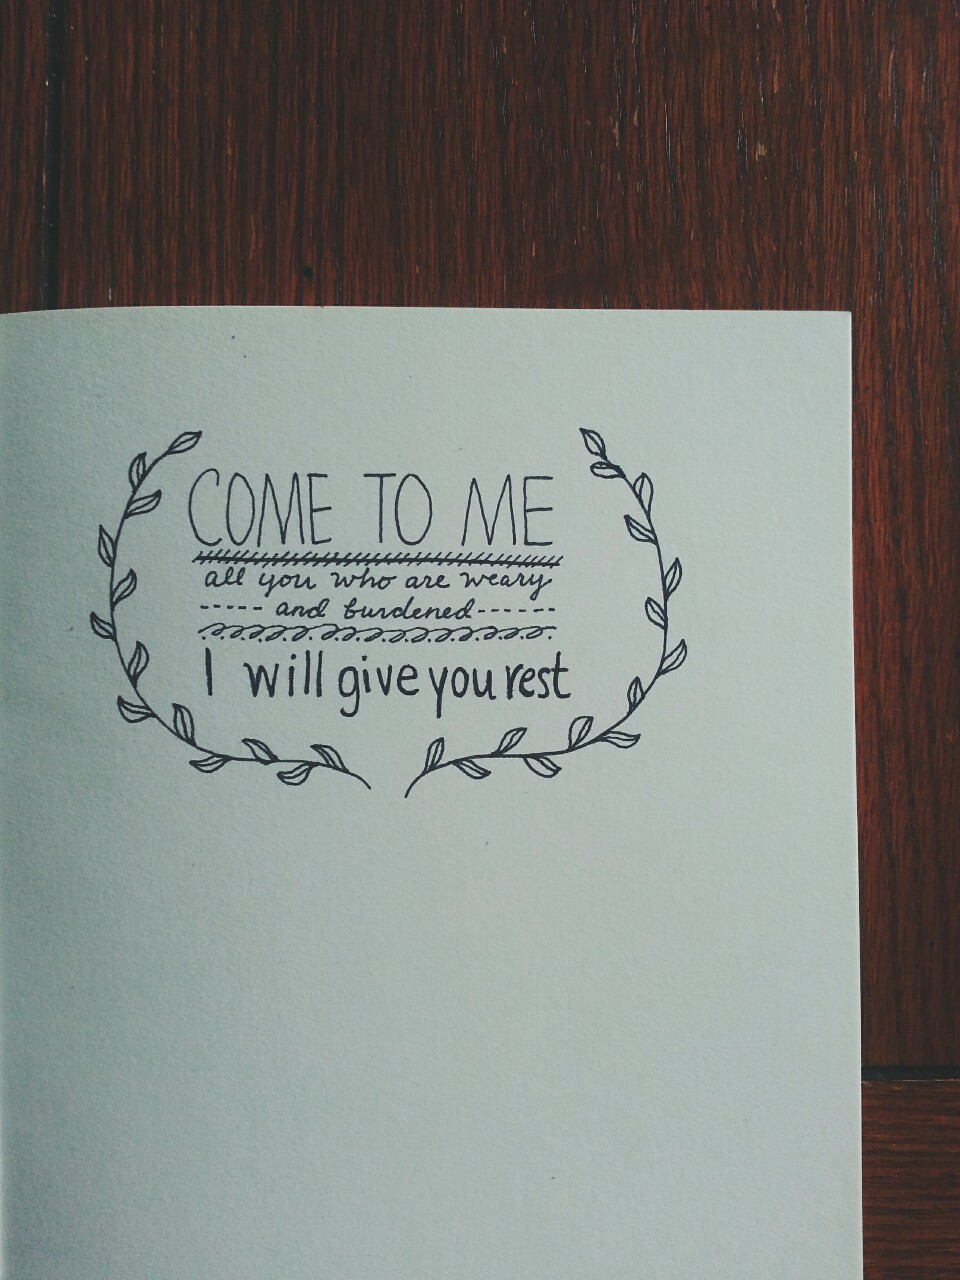 COME TO ME
all you who are weary
and burdened
I will give you rest